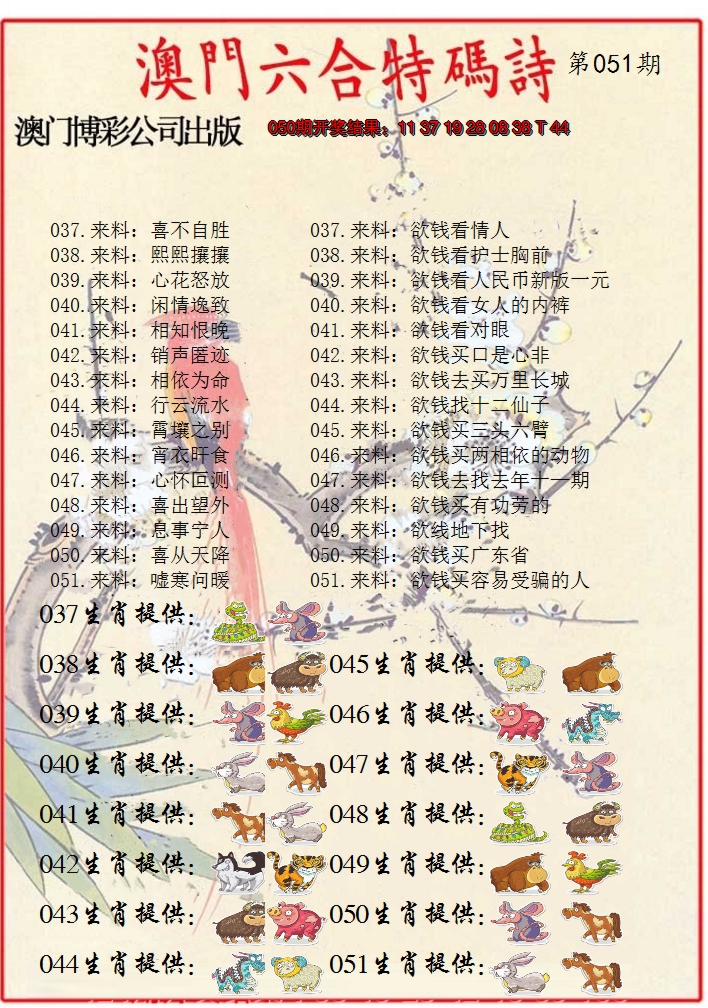 澳門六合特碼詩 第051期
澳门博彩公司出版 050期开奖结果：11 37 19 28 08 38 T 44
037.来料：喜不自胜 037.来料：欲钱看情人
038.来料：熙熙攘攘 038.来料：欲钱看护士胸前
039.来料：心花怒放 039.来料：欲钱看人民币新版一元
040.来料：闲情逸致 040.来料：欲钱看女人的内裤
041.来料：相知恨晚 041.来料：欲钱看对眼
042.来料：销声匿迹 042.来料：欲钱买口是心非
043.来料：相依为命 043.来料：欲钱去买万里长城
044.来料：行云流水 044.来料：欲钱找十二仙子
045.来料：霄壤之别 045.来料：欲钱买三头六臂
046.来料：宵衣旰食 046.来料：欲钱买两相依的动物
047.来料：心怀叵测 047.来料：欲钱去找去年十一期
048.来料：喜出望外 048.来料：欲钱买有功劳的
049.来料：息事宁人 049.来料：欲线地下找
050.来料：喜从天降 050.来料：欲钱买广东省
051.来料：嘘寒问暖 051.来料：欲钱买容易受骗的人
037生肖提供：
038生肖提供： 045生肖提供：
039生肖提供： 046生肖提供：
040生肖提供： 047生肖提供：
041生肖提供： 048生肖提供：
042生肖提供： 049生肖提供：
043生肖提供： 050生肖提供：
044生肖提供： 051生肖提供：